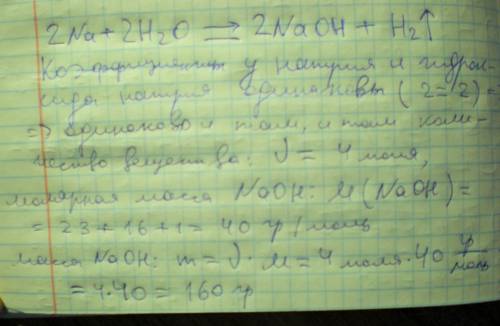 2Na + 2H₂O ⇒ 2NaOH + H₂↑
Коэффициенты у натрия и гидрок-
сида натрия одинаковы (2=2) =
=> одинаково и там, и там коли-
чество вещества: ν = 4 моля,
молярная масса NaOH: M(NaOH) =
= 23 + 16 + 1 = 40 гр/моль
масса NaOH: m = ν · M = 4 моля · 40 гр/моль
= 4·40 = 160 гр